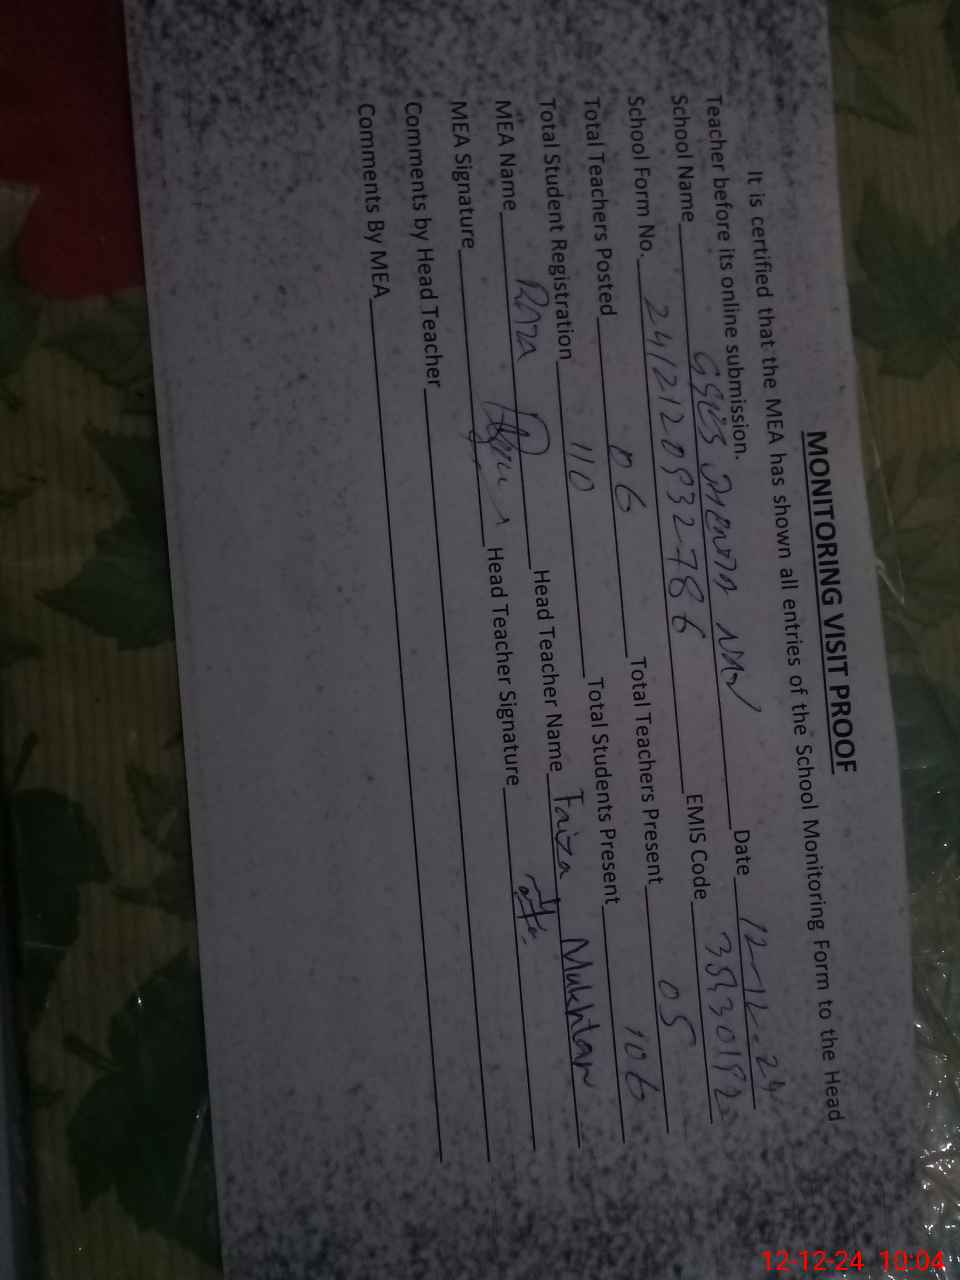 MONITORING VISIT PROOF
It is certified that the MEA has shown all entries of the School Monitoring Form to the Head
Teacher before its online submission.
School Name Date 12-12-24
School Form No. EMIS Code
Total Teachers Posted 06 Total Teachers Present 05
Total Student Registration 110 Total Students Present 106
MEA Name Raza Head Teacher Name Faiza Mukhtar
MEA Signature Head Teacher Signature
Comments by Head Teacher
Comments By MEA
12-12-24 10:04